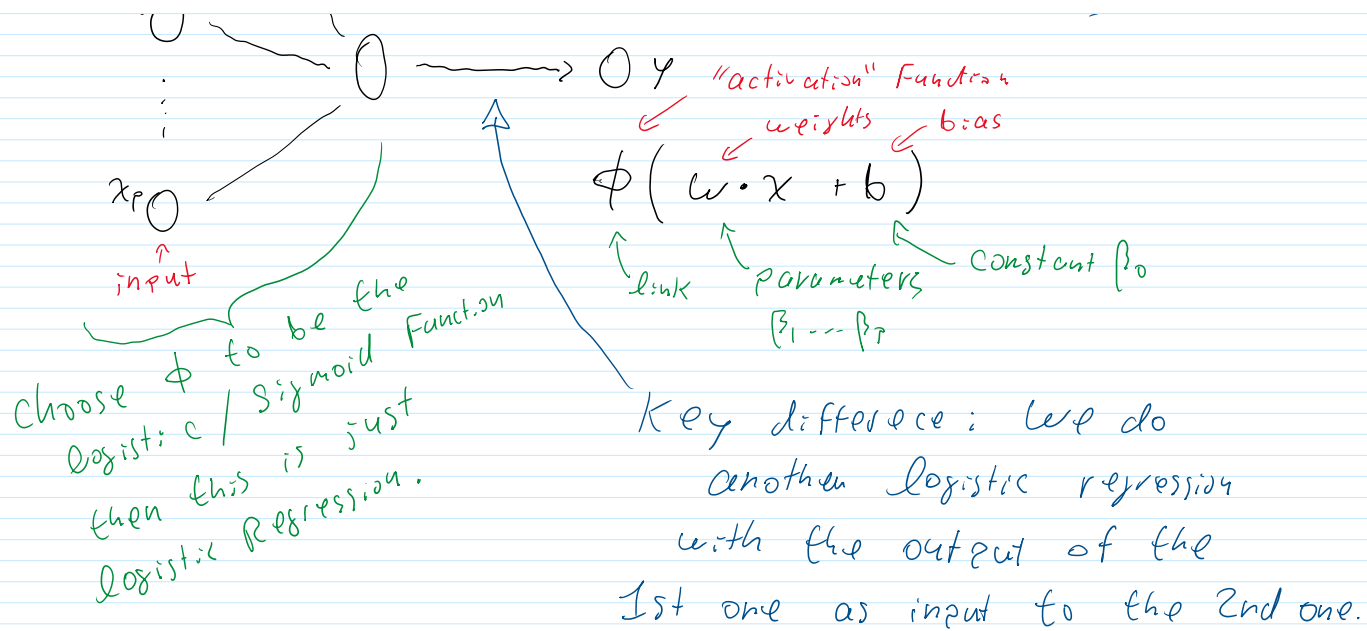 y
"activation" Function
weights
bias
ϕ( w · x + b )
x_p
input
link
parameters
β_1 ---- β_p
constant β_0
Choose ϕ to be the
logistic / sigmoid Function
then this is just
logistic Regression.
Key differece : We do
another logistic regression
with the output of the
1st one as input to the 2nd one.